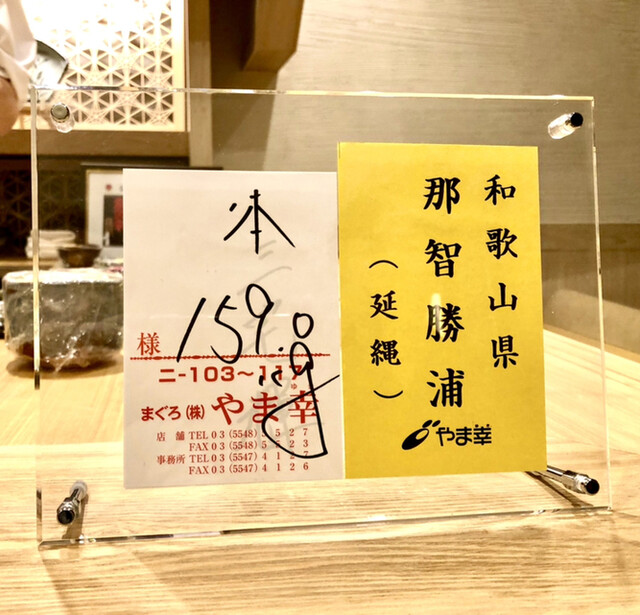 本
159.0
様
ニ-103～117
まぐろ(株) やま幸
店 舗 TEL 03 (5548) 5527
FAX 03 (5548) 5523
事務所 TEL 03 (5547) 4127
FAX 03 (5547) 4126
和歌山県
那智勝浦
（延縄）
やま幸